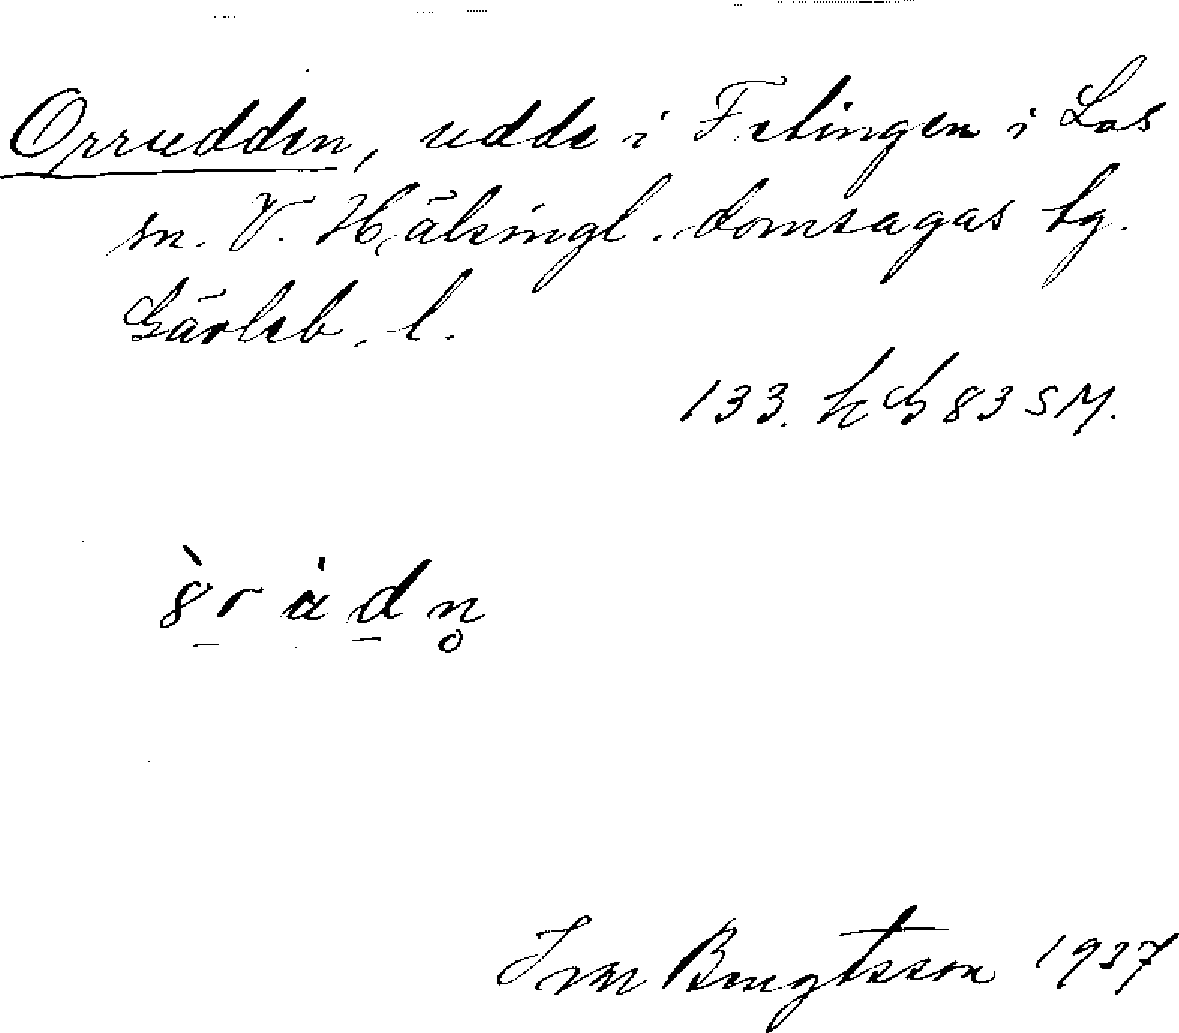 Orrudden, udde i Fetingen i Los
sn. V. Hälsingl. domsagas tg.
Gävleb. l.
133. 83 SM.
Bengtsson 1937